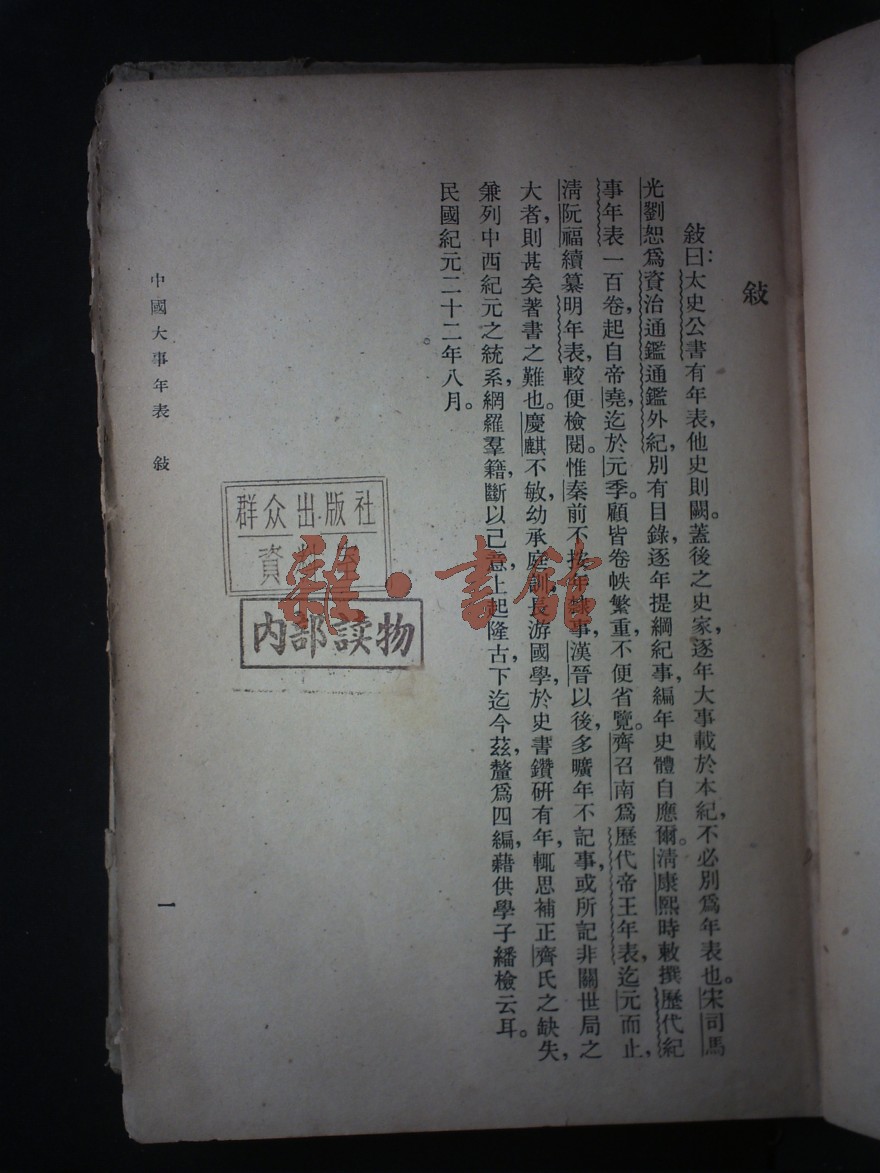 敍
敍曰：太史公書有年表，他史則闕。蓋後之史家，逐年大事載於本紀，不必別爲年表也。宋司馬
光劉恕爲資治通鑑通鑑外紀，別有目錄，逐年提綱紀事，編年史體自應爾。清康熙時敕撰歷代紀
事年表一百卷，起自帝堯，迄於元季。顧皆卷帙繁重，不便省覽。齊召南爲歷代帝王年表，迄元而止，
清阮福續纂明年表，較便檢閱。惟秦前不按年隸事，漢晉以後，多曠年不記事，或所記非關世局之
大者，則甚矣著書之難也。慶麒不敏，幼承庭訓，長游國學，於史書鑽研有年，輒思補正齊氏之缺失，
兼列中西紀元之統系，網羅羣籍，斷以己意，上起隆古，下迄今茲，釐爲四編，藉供學子繙檢云耳。
民國紀元二十二年八月。
中國大事年表　敍
一
群众出版社
資料室
内部读物
雜·書館